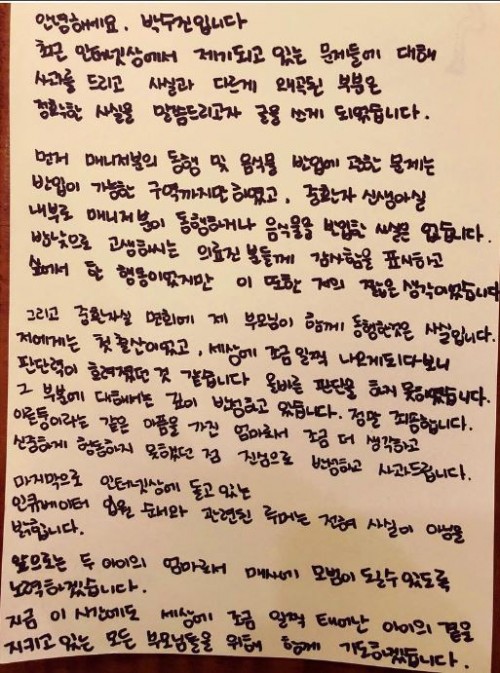 안녕하세요. 박수진입니다
최근 인터넷상에서 제기되고 있는 문제들에 대해
사과를 드리고 사실과 다르게 왜곡된 부분은
정확한 사실을 말씀드리고자 글을 쓰게 되었습니다.
먼저 매니저분의 동행 및 음식물 반입에 관한 문제는
반입이 가능한 구역까지만 하였고, 중환자 신생아실
내부로 매니저분이 동행하거나 음식물을 반입한 사실은 없습니다.
밤낮으로 고생하시는 의료진 분들께 감사함을 표시하고
싶에서 한 행동이었지만 이 또한 저의 짧은 생각이었습니다
그리고 중환자실 면회에 제 부모님이 함께 동행한것은 사실입니다.
저에게는 첫 출산이었고, 세상에 조금 일찍 나오게되다보니
판단력이 흐려졌던 것 같습니다 올바른 판단을 하지 못하였습니다.
그 부분에 대해서는 깊이 반성하고 있습니다. 정말 죄송합니다.
이른둥이라는 같은 아픔을 가진 엄마로서 조금 더 생각하고
신중하게 행동하지 못했던 점 진심으로 반성하고 사과드립니다.
마지막으로 인터넷상에 돌고 있는
인큐베이터 입원 순서와 관련된 루머는 전혀 사실이 아님을
밝힙니다.
앞으로는 두 아이의 엄마로서 매사에 모범이 되도록
노력하겠습니다.
지금 이 시간에도 세상에 조금 일찍 태어난 아이의 곁을
지키고 있는 모든 부모님들을 위해 함께 기도하겠습니다.